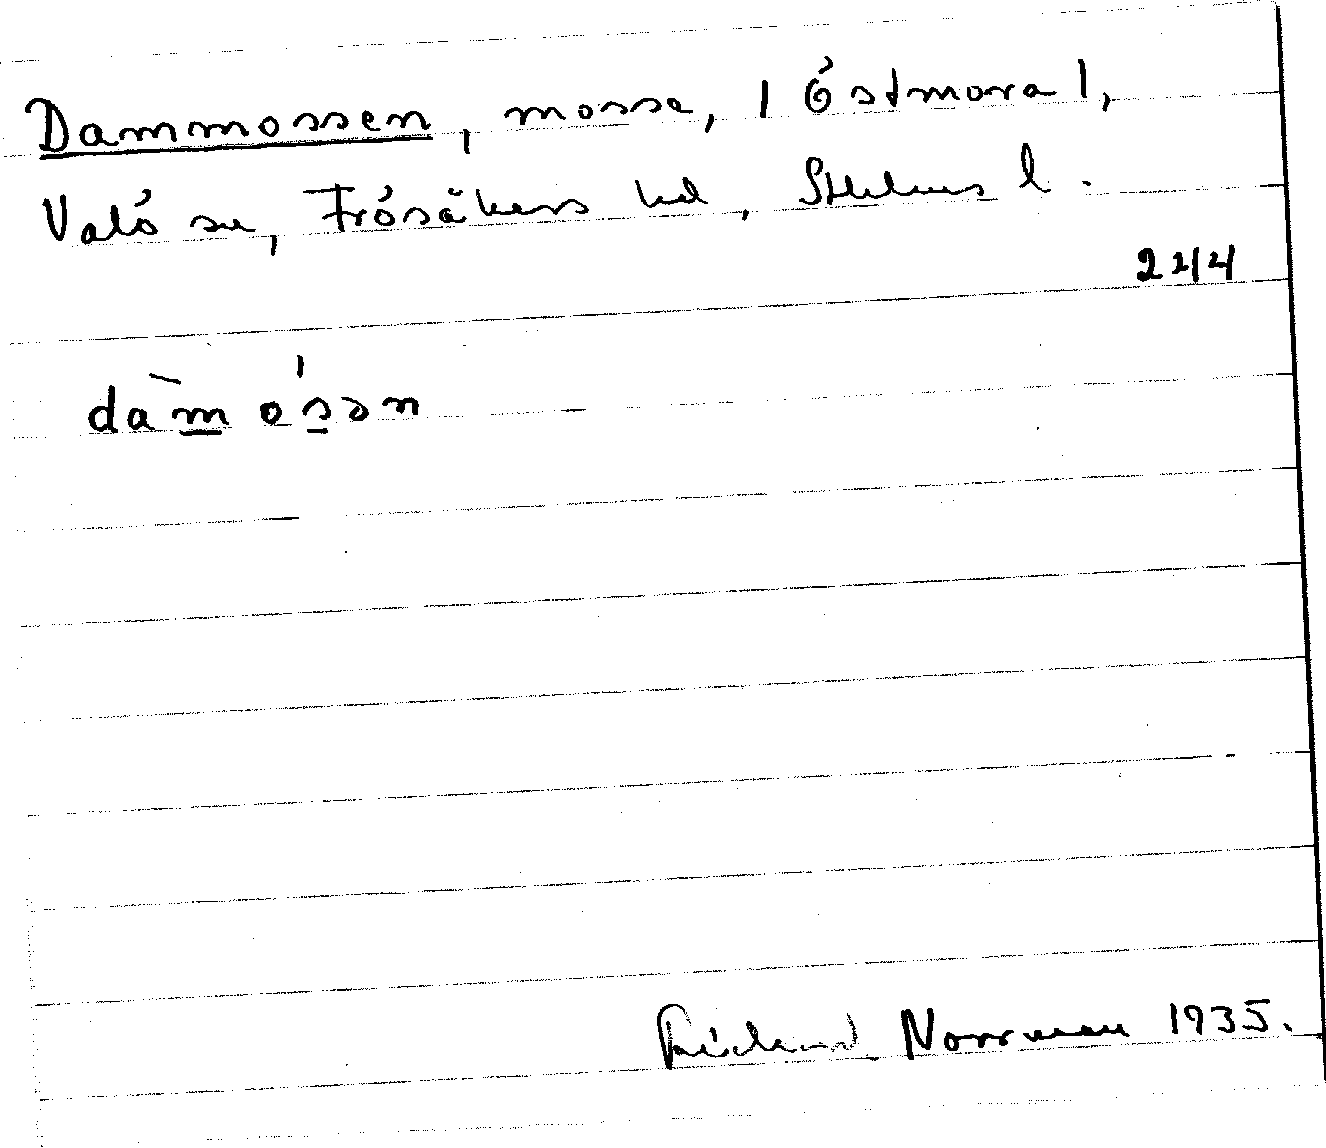 Dammossen, mossa, / Östmora /,
Valö sn, Frösåkers hd, Sthlms l.
244
dàmósən
Rickard Norrman 1935.